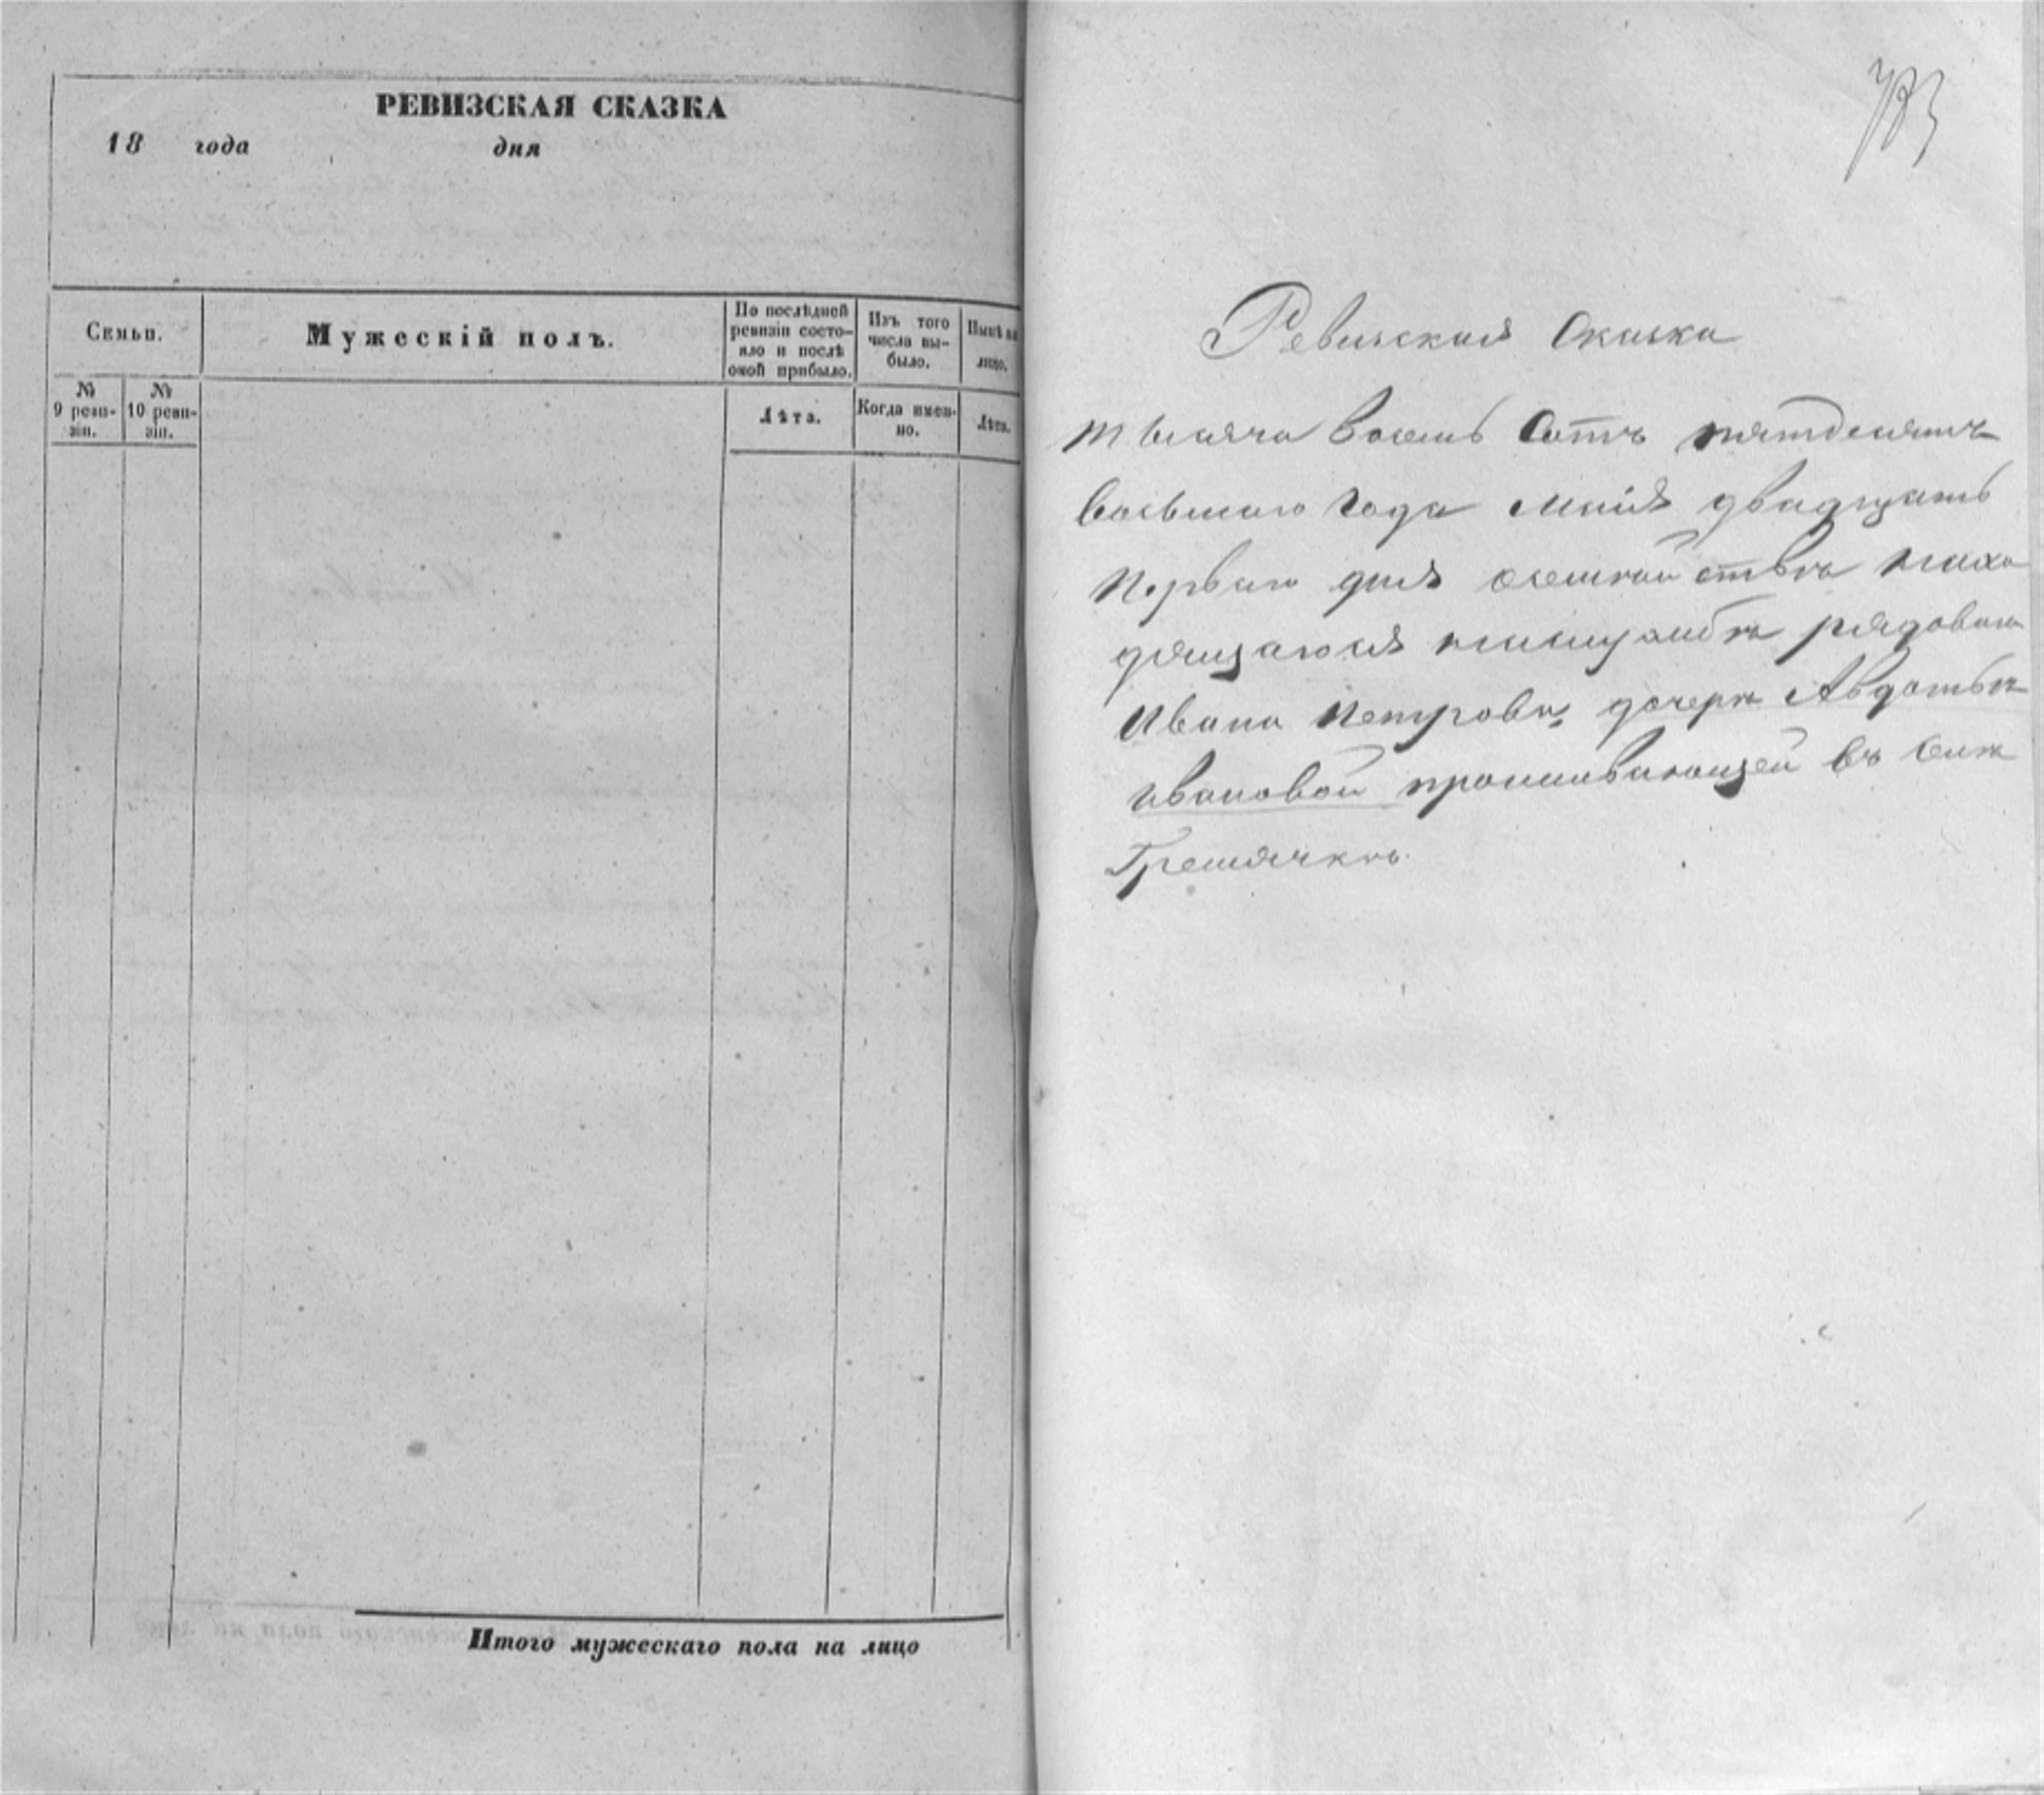 РЕВИЗСКАЯ СКАЗКА
18 года дня
Семьи.
Мужескій полъ.
По послѣдней ревизіи состояло и послѣ оной прибыло.
Изъ того числа выбыло.
Нынѣ на лицо.
№ 9 ревизіи.
№ 10 ревизіи.
Лѣта.
Когда именно.
Лѣта.
Итого мужескаго пола на лицо
Ревизская Сказка
тысяча восемь сотъ пятдесятъ
восьмаго года маія двадцать
перваго дня о семействѣ
рядоваго
Ивана Петрова, дочери Авдотьи
Ивановой проживающей въ селѣ
Гремячкѣ